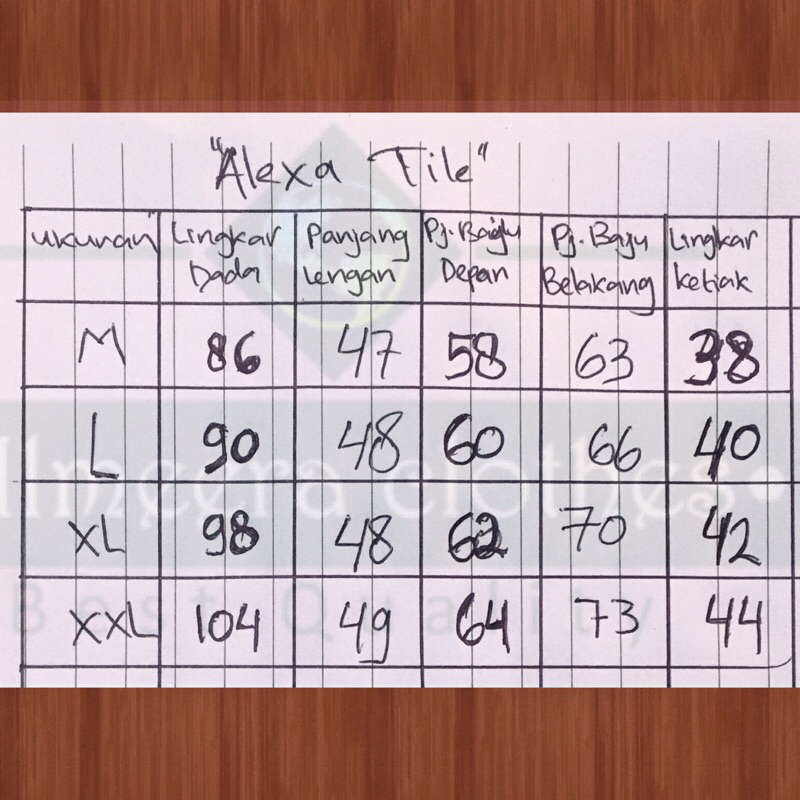 "Alexa Tile"
ukuran Lingkar Dada Panjang Lengan Pj. Baju Depan Pj. Baju Belakang Lingkar Ketiak
M 86 47 58 63 38
L 90 48 60 66 40
XL 98 48 62 70 42
XXL 104 49 64 73 44
llmeera clothes
Best Quality